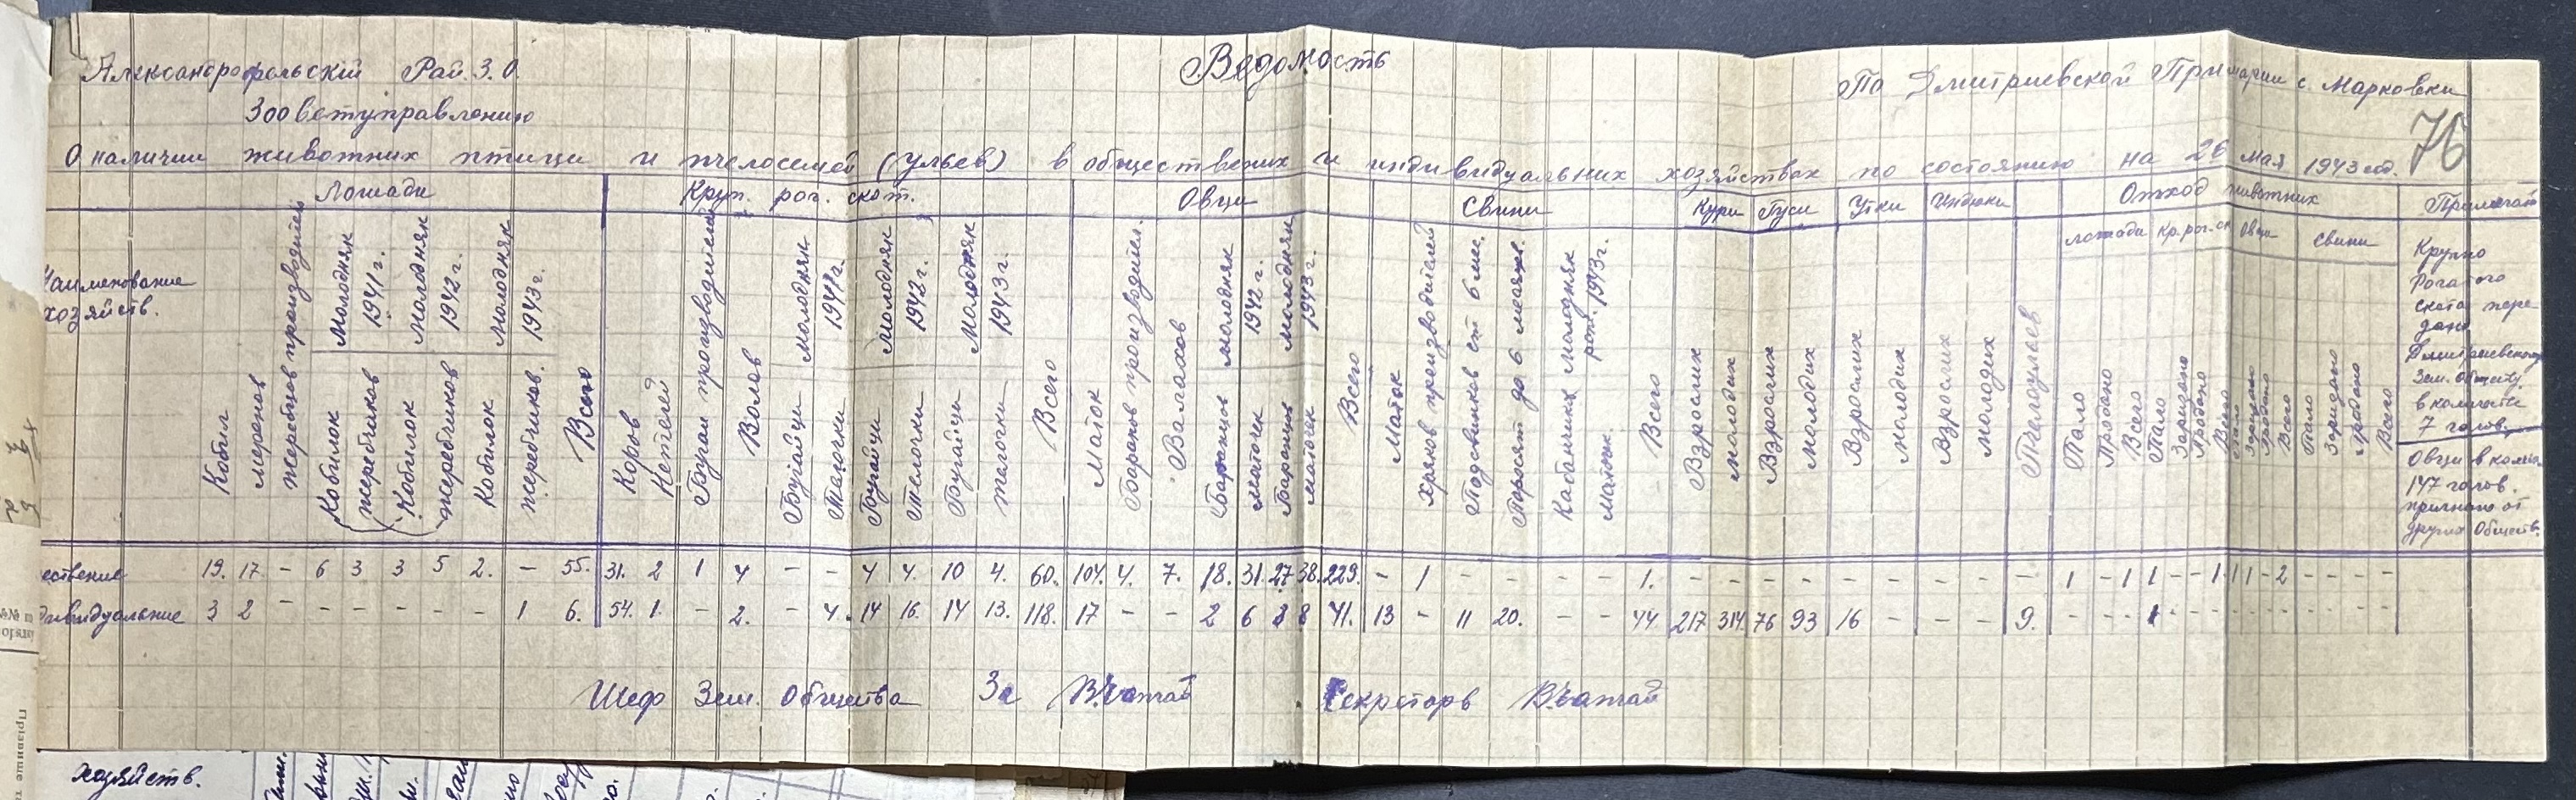 Александрофельскій Рай. З. О.
Ведомость
По Дмитриевской Примарии с. Марковки
Зооветуправлению
76
О наличии животних птици и пчелосемей (ульев) в обществених и индивидуальних хозяйствах по состоянию на 26 мая 1943 год.
Наименование хозяйств.
Лошади
Кобил
меренов
жеребцов производителей
Молодняк 1941 г.
Кобилок
жеребчиков
молодняк 1942 г.
Кобилок
жеребчиков
молодняк 1943 г.
Кобилок
жеребчиков.
Всего
Круп. рог. скот.
Коров
Нетелей
Бугаи производителей
Волов
молодняк 1941 г.
Бугайци
Телочки
молодняк 1942 г.
Бугайци
Телочки
Молодняк 1943 г.
Бугайци
телочки
Всего
Овци
Маток
Баранов производител.
Валахов
молодняк 1942 г.
Баранчиков
маточек
молодняк 1943 г.
Баранчиков
маточек
Всего
Свини
Маток
Хряков производителей
Подсвинков от 6 мес.
Поросят до 6 месяцев.
Кабанчики молодняк рож. 1943 г.
Маток.
Всего
Кури
Взрослих
молодих
Гуси
Взрослих
молодих
Утки
Взрослих
молодих
Индюки
Взрослих
молодих
Пчелоульев
Отход животних
лошади
Пало
Продано
Всего
Кр. рог. ск
Пало
Зарезано
Продано
Всего
Овци
Пало
Зарезано
Продано
Всего
Свини
Пало
Зарезано
продано
Всего
Примечан
Крупно
Рогатого
скота пере
дано
Дмитриевскому
Зем. Обществу
в количестве
7 голов.
Овци в колич.
147 голов.
принято от
других Обществ.
ествение 19. 17 - 6 3 3 5 2. - 55. 31. 2 1 4 - - 4 4. 10 4. 60. 104. 4. 7. 18. 31. 27 38. 229. - 1 - - - - 1. - - - - - - - - - 1 - 1 1 - - 1 1 1 - 2 - - - -
дивидуальние 3 2 - - - - - - 1 6. 54. 1. - 2. - 4. 14 16. 14 13. 118. 17 - - 2 6 8 8 41. 13 - 11 20. - - 44 217 314 76 93 16 - - - 9. - - - 1 - - - - - - - - - - -
Шеф Зем. Общества За
Секреторь
хозяйств.